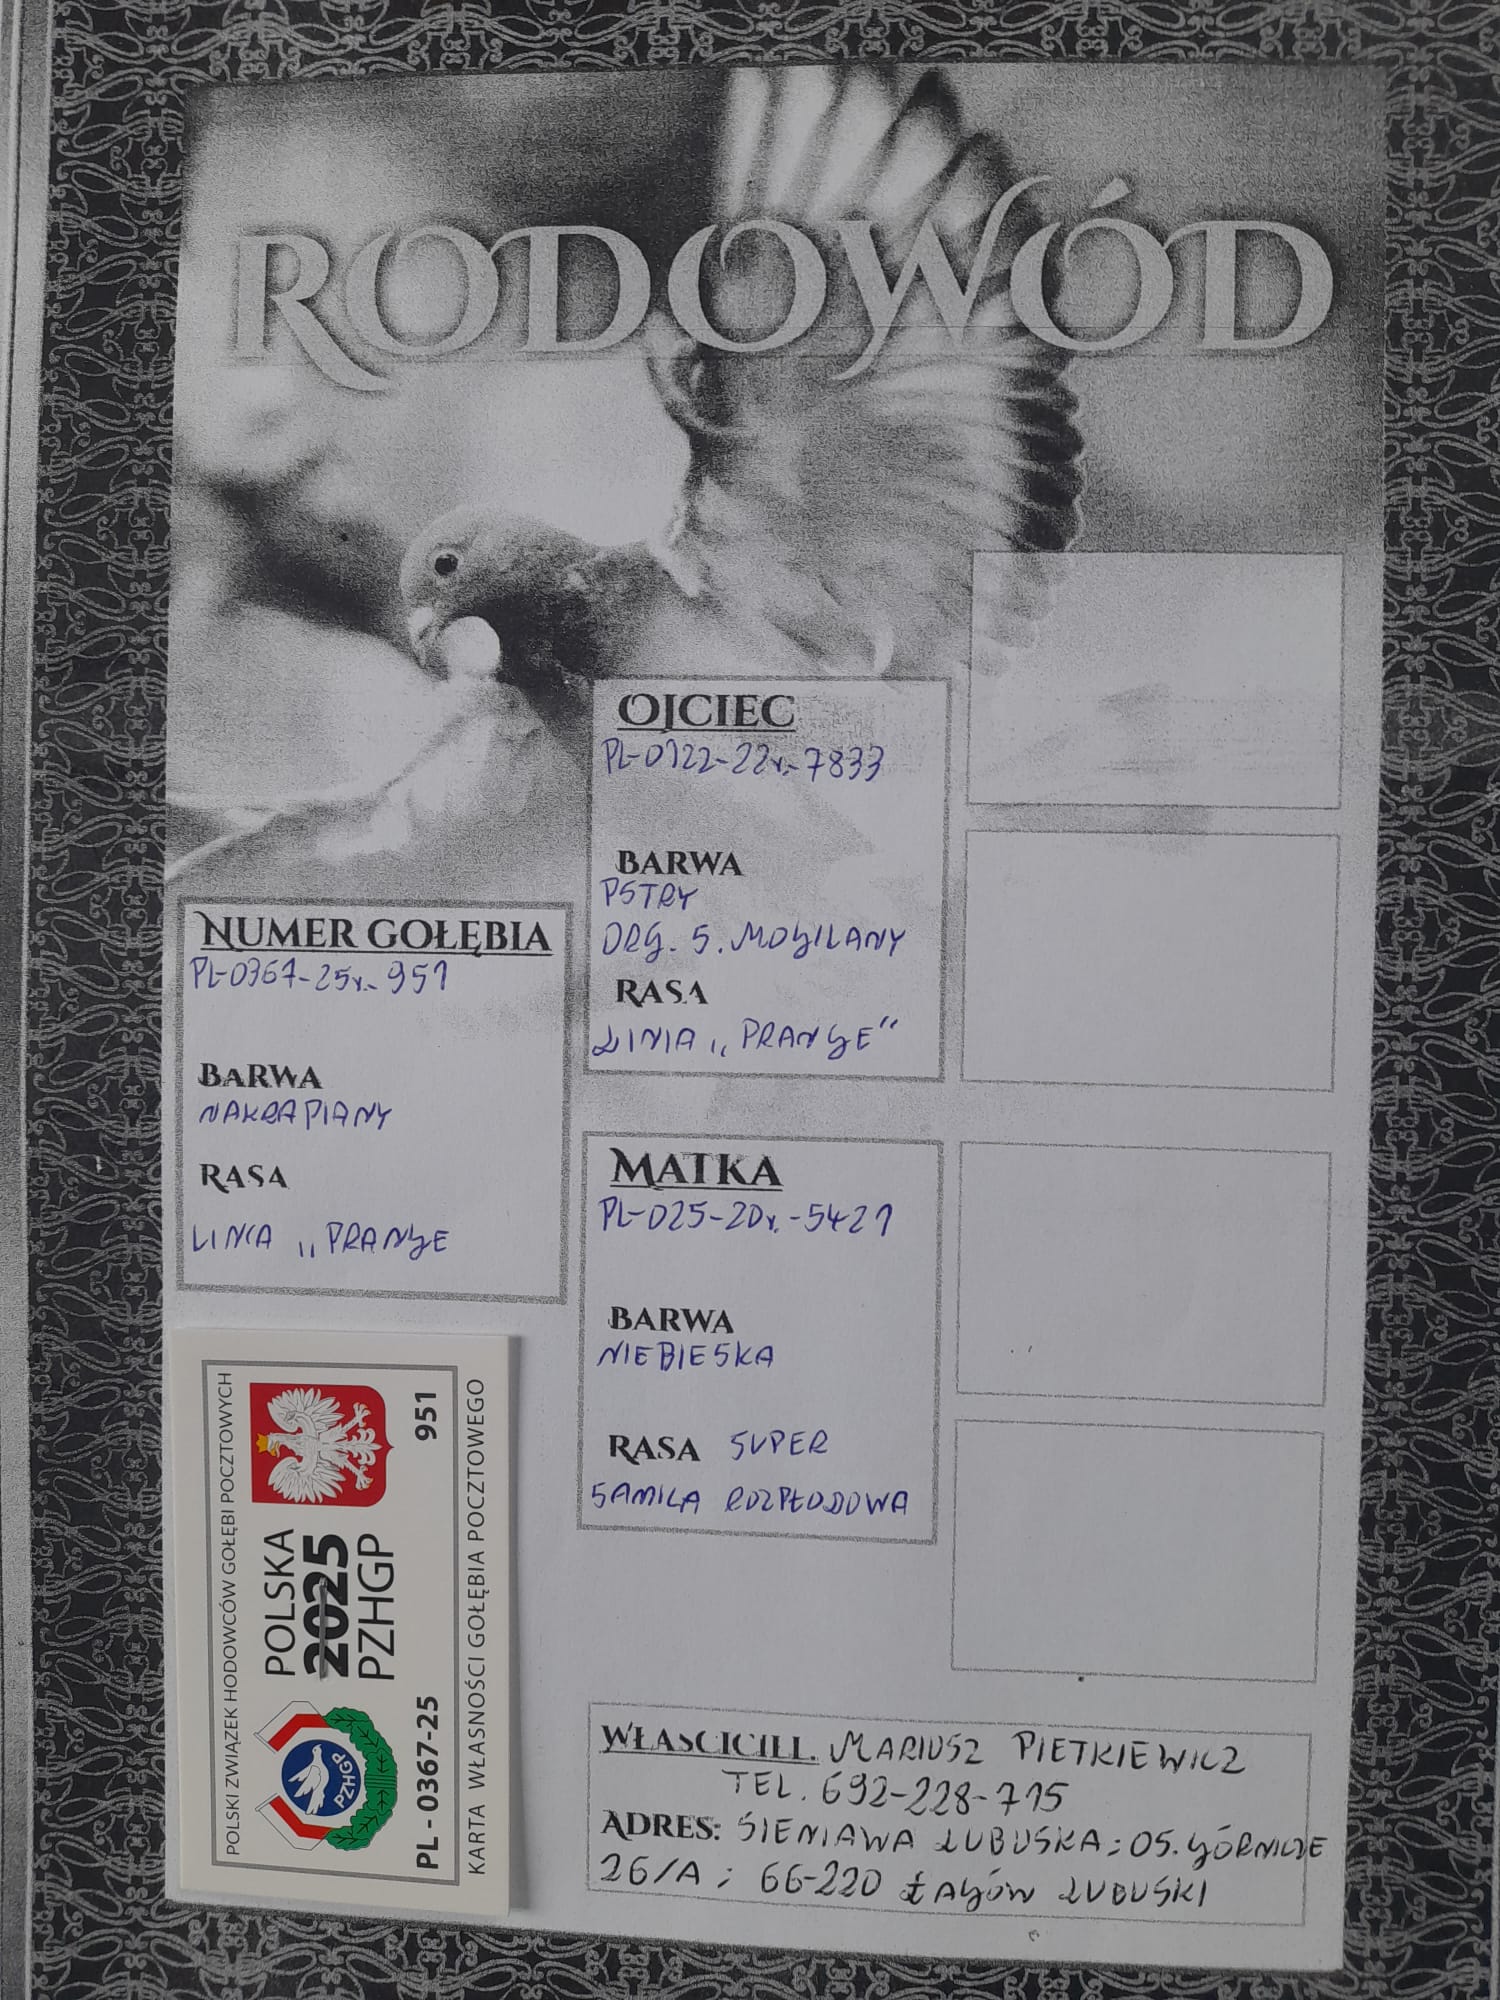 RODOWÓD
OJCIEC
PL-0122-22r.-7833
BARWA
PSTRY
ORG. S. MOGILANY
RASA
LINIA „PRANGE"
NUMER GOŁĘBIA
PL-0367-25r.-951
BARWA
NAKRAPIANY
RASA
LINIA „PRANGE
MATKA
PL-025-20r.-5421
BARWA
NIEBIESKA
RASA SUPER
SAMICA ROZPŁODOWA
POLSKI ZWIĄZEK HODOWCÓW GOŁĘBI POCZTOWYCH
POLSKA
2025
PZHGP
PZHGP
PL - 0367-25 951
KARTA WŁASNOŚCI GOŁĘBIA POCZTOWEGO
WŁAŚCICIEL. MARIUSZ PIETKIEWICZ
TEL. 692-228-715
ADRES: SIENIAWA LUBUSKA; OS. GÓRNICZE
26/A ; 66-220 ŁAGÓW LUBUSKI